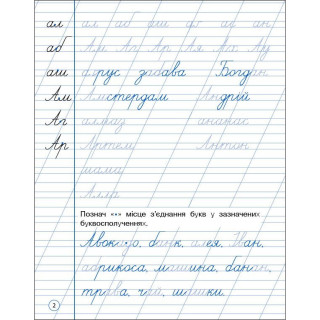 ал ал аб аш
аб Ам Аг Ар Ая Ах Ау
аш парус забава Богдан
Ам Амстердам Андрій
Аг алмаз ананас
Ар Артем Антон
Алла
Познач «×» місце з'єднання букв у зазначених
буквосполученнях.
Авокадо, банк, алея, Іван,
абрикоса, машина, банан,
трава, чай, шашки.
2